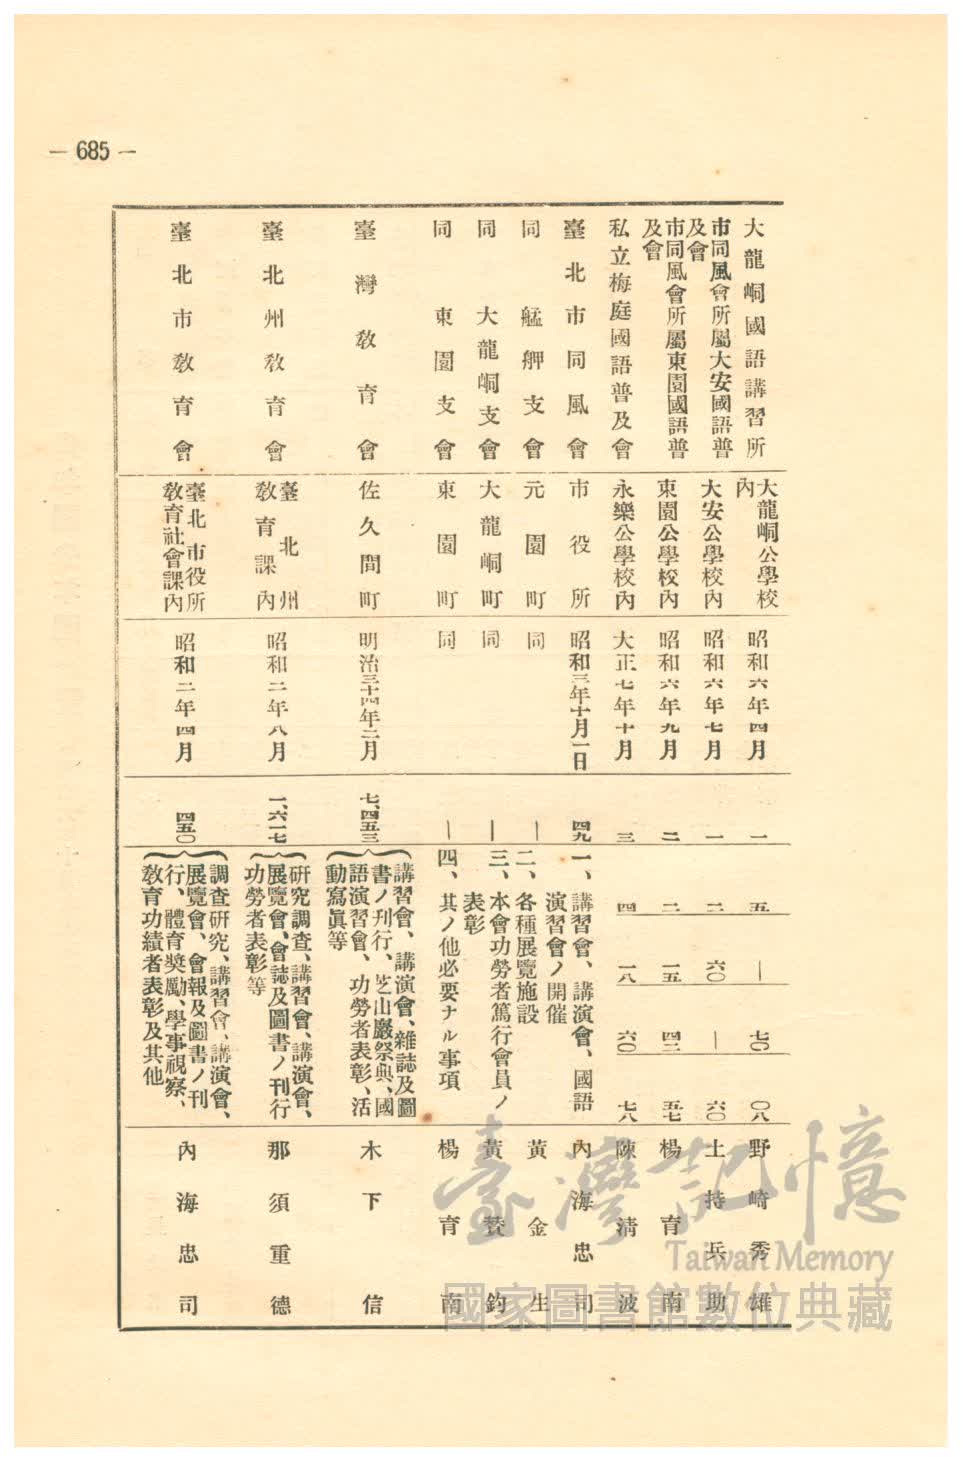 — 685 —
大龍峒國語講習所
大龍峒公學校內
昭和六年四月
一
五
｜
七〇
〇八
野崎秀雄
市同風會所屬大安國語普及會
大安公學校內
昭和六年七月
一
二
六〇
｜
六〇
土持兵助
市同風會所屬東園國語普及會
東園公學校內
昭和六年九月
二
二
一五
四二
五七
楊育南
私立梅庭國語普及會
永樂公學校內
大正七年十月
三
四
一八
六〇
七八
陳淸波
臺北市同風會
市役所
昭和三年十月一日
四九
一、講習會、講演會、國語
演習會ノ開催
內海忠司
同 艋舺支會
元園町
同
｜
二、各種展覽施設
黃金生
同 大龍峒支會
大龍峒町
同
｜
三、本會功勞者篤行會員ノ
表彰
黃贊鈞
同 東園支會
東園町
同
｜
四、其ノ他必要ナル事項
楊育南
臺灣敎育會
佐久間町
明治三十四年二月
七、四五三
講習會、講演會、雜誌及圖
書ノ刊行、芝山巖祭典、國
語演習會、功勞者表彰、活
動寫眞等
木下信
臺北州敎育會
臺北州
敎育課內
昭和二年八月
一、六一七
硏究調査、講習會、講演會、
展覽會、會誌及圖書ノ刊行
功勞者表彰等
那須重德
臺北市敎育會
臺北市役所
敎育社會課內
昭和二年四月
四五〇
調査硏究、講習會、講演會、
展覽會、會報及圖書ノ刊
行、體育奬勵、學事視察、
敎育功績者表彰及其他
內海忠司
臺灣記憶
Taiwan Memory
國家圖書館數位典藏